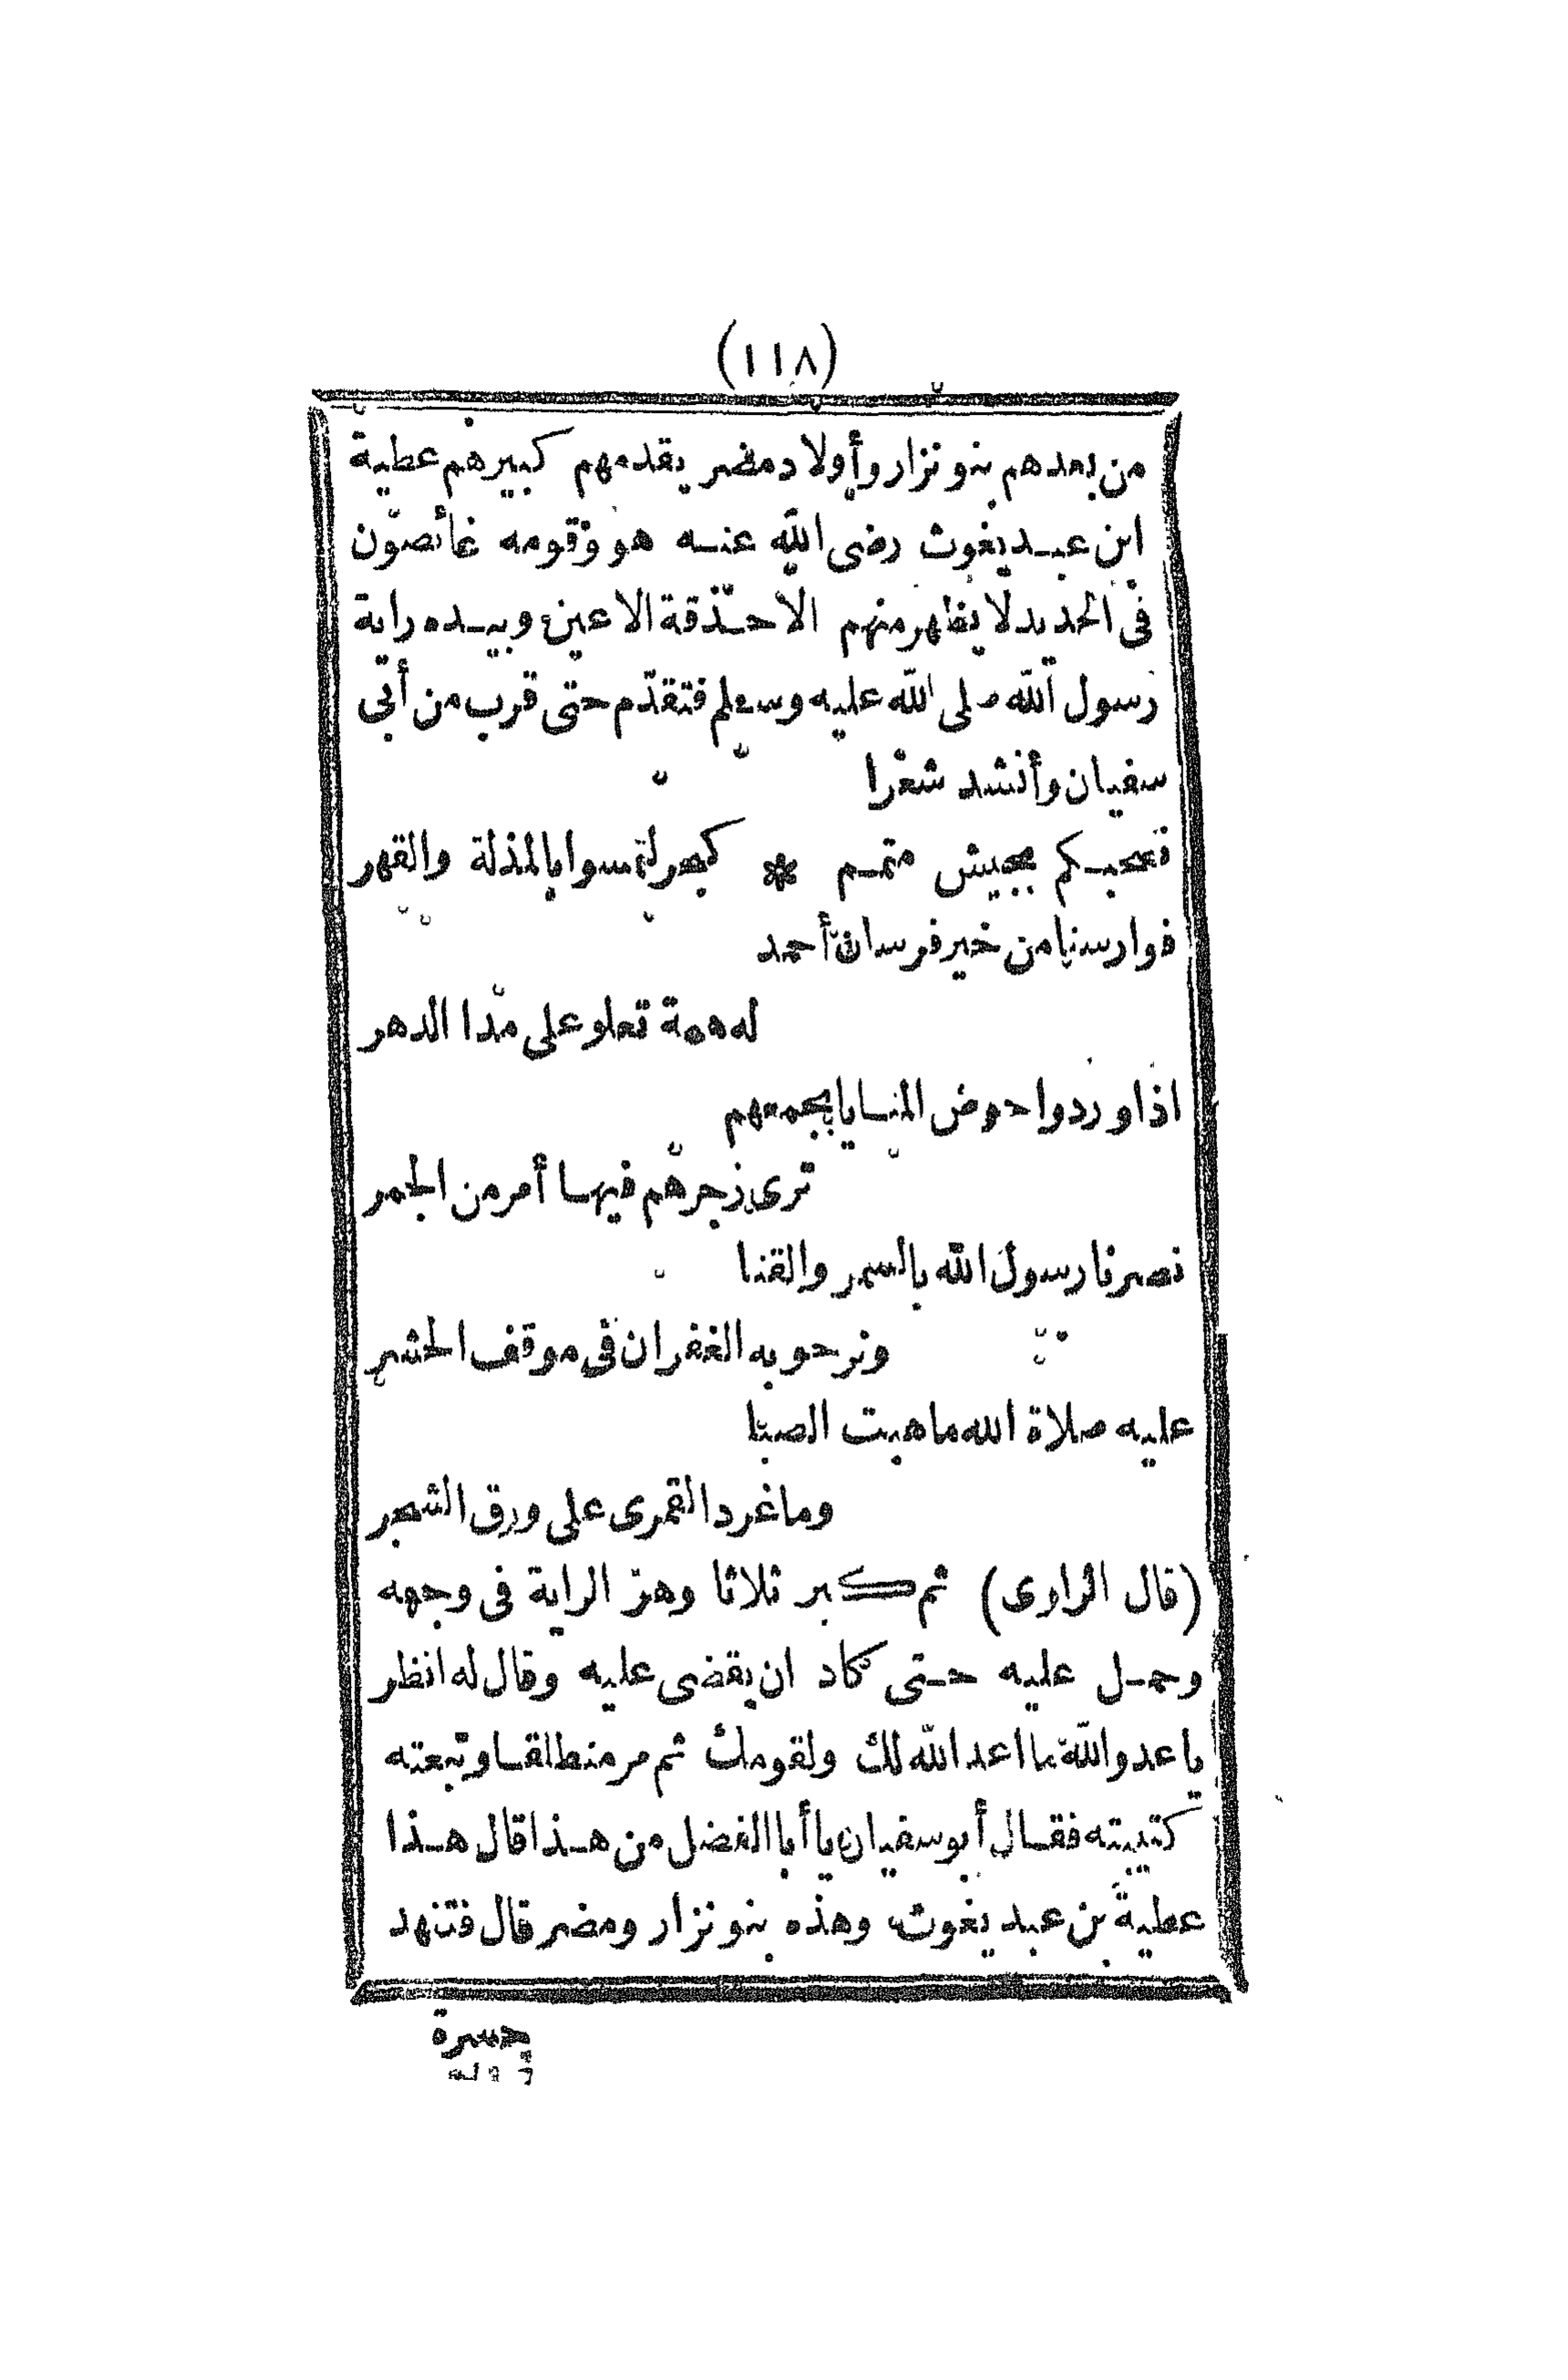 (١١٨)
من بعدهم بنو نزار وأولاد مضر يقدمهم كبيرهم عطية
ابن عبد يغوث رضى الله عنه هو وقومه غائصون
فى الحديد لا يظهر منهم الا حدقة الاعين وبيده راية
رسول الله صلى الله عليه وسلم فتقدّم حتى قرب من أبى
سفيان وأنشد شعرا
بجيش متمم * كبحر لتمسوا بالمذلة والقهر
فوارسنا من خير فرسان أحمد
له همة تعلو على مدا الدهر
اذا وردوا حوض المنايا بجمعهم
ترى زجرهم فيها أمر من الجمر
نصرنا رسول الله بالسمر والقنا
ونرجو به الغفران فى موقف الحشر
عليه صلاة الله ما هبت الصبا
وما غرد القمرى على ورق الشجر
(قال الراوى) ثم كبر ثلاثا وهز الراية فى وجهه
وحمل عليه حتى كاد ان يقضى عليه وقال له انظر
يا عدو الله ما اعد الله لك ولقومك ثم مر منطلقا وتبعته
كتيبته فقال أبو سفيان يا أبا الفضل من هذا قال هذا
عطية بن عبد يغوث وهذه بنو نزار ومضر قال فتنهد
حسرة